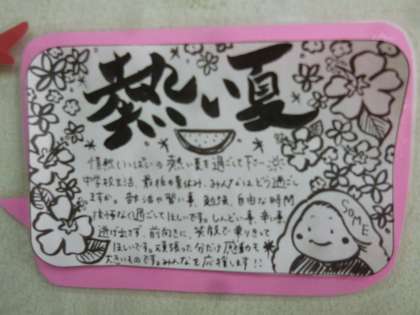 熱い夏
情熱いっぱいの熱い夏を過ごして下さい
中学校生活、最後の夏休み、みんなはどう過ごし
ますか。部活や習い事、勉強、自由な時間
後悔なく過ごしてほしいです。しんどい事、辛い事
逃げ出さず、前向きに、笑顔で乗りきって
ほしいです。頑張った分だけ感動も
大きいものです。みんなを応援します!!
SOME